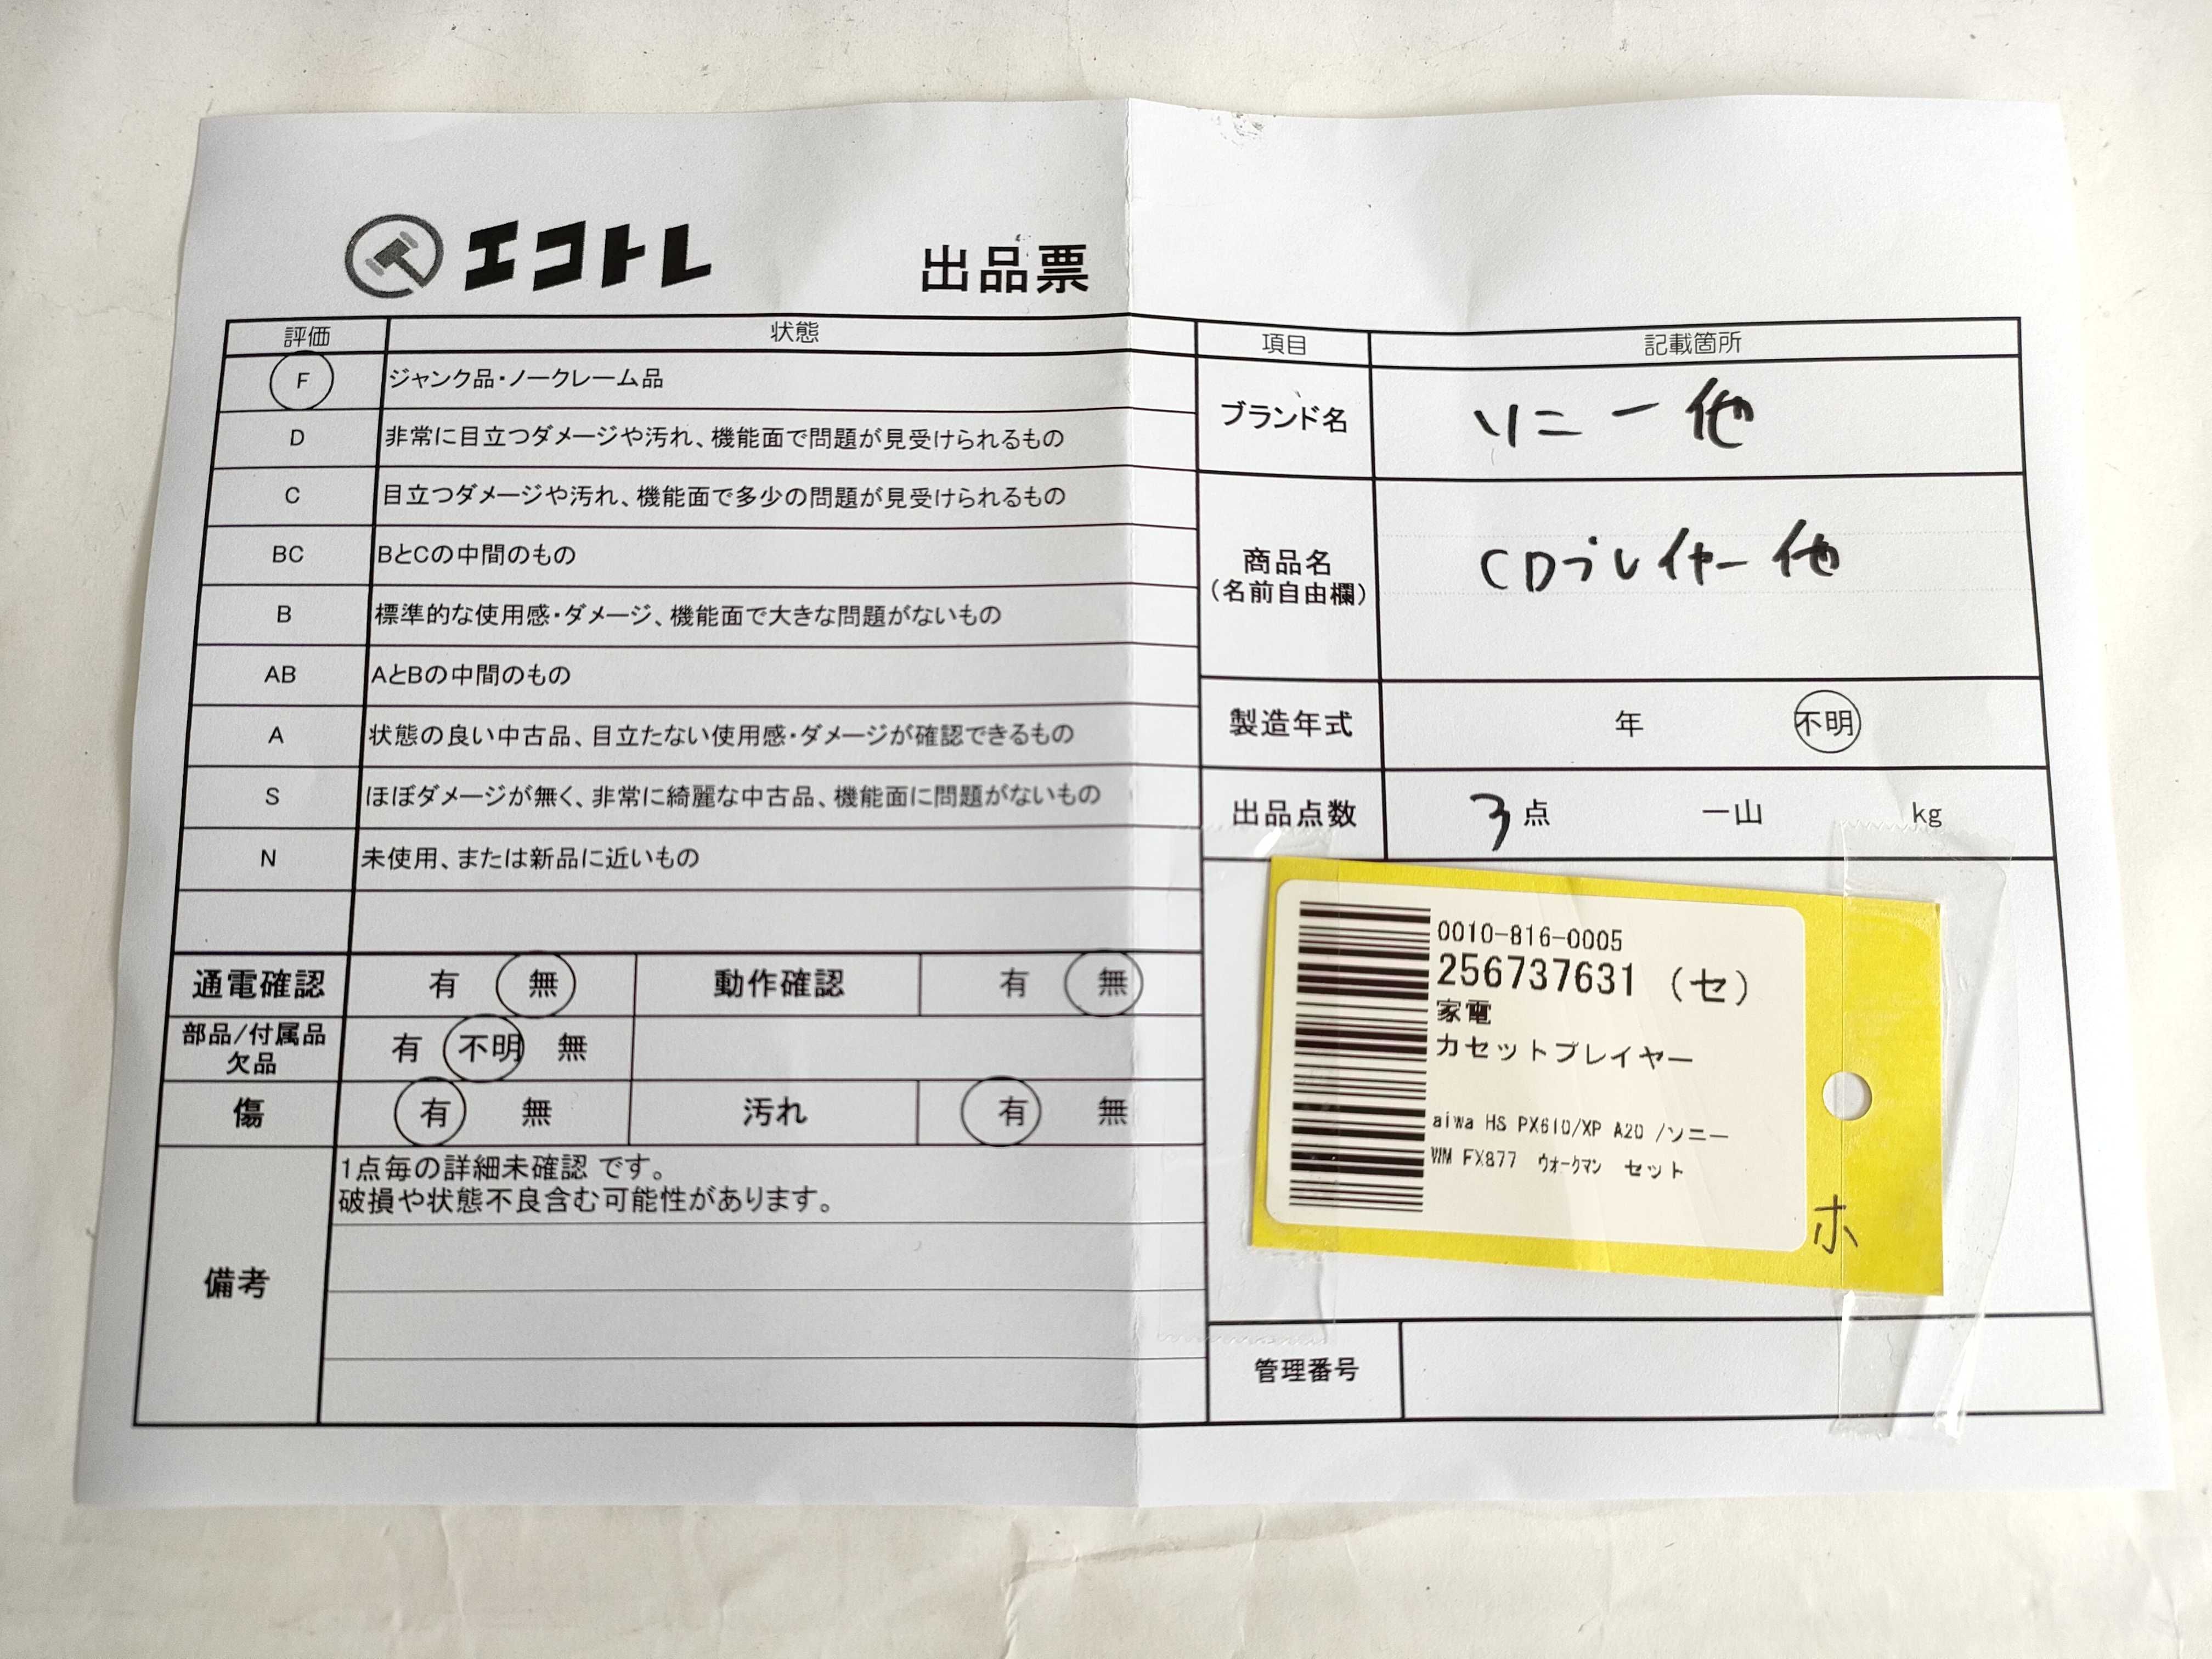 エコトレ 出品票
評価 状態
F ジャンク品・ノークレーム品
D 非常に目立つダメージや汚れ、機能面で問題が見受けられるもの
C 目立つダメージや汚れ、機能面で多少の問題が見受けられるもの
BC BとCの中間のもの
B 標準的な使用感・ダメージ、機能面で大きな問題がないもの
AB AとBの中間のもの
A 状態の良い中古品、目立たない使用感・ダメージが確認できるもの
S ほぼダメージが無く、非常に綺麗な中古品、機能面に問題がないもの
N 未使用、または新品に近いもの
通電確認 有 無 動作確認 有 無
部品/付属品
欠品 有 不明 無
傷 有 無 汚れ 有 無
備考
1点毎の詳細未確認 です。
破損や状態不良含む可能性があります。
項目 記載箇所
ブランド名 ソニー他
商品名
(名前自由欄)
CDプレイヤー他
製造年式 年 不明
出品点数 3点 一山 kg
0010-816-0005
256737631 (セ)
家電
カセットプレイヤー
aiwa HS PX610/XP A20 /ソニー
WM FX877 ウォークマン セット
ホ
管理番号